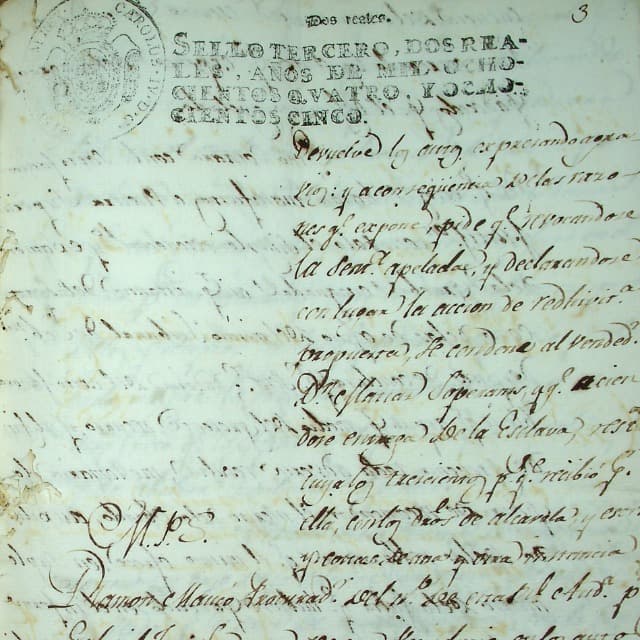 Dos reales.
3
SELLO TERCERO, DOS REA-
LES, AÑOS DE MIL OCHO-
CIENTOS QVATRO, Y OCHO-
CIENTOS CINCO.
Devuelve los autos, expresando agra-
vios: y a consequencia de las razo-
nes qe. expone, pide qe. revocandose
la Sentª. apelada, y declarandose
con lugar la accion de redhivitª.
propuesta, se condene al vended.
Dn. Florian Soperans, a qe. acien
dose entrega de la Esclava, resti
tuya los trecientos ps. qe. recibio pr.
ella, con los dros. de alcavala, y
y costas de una y otra instancia
M. P. S.
Ramon Procurad. del de esta Rl. Audª. p